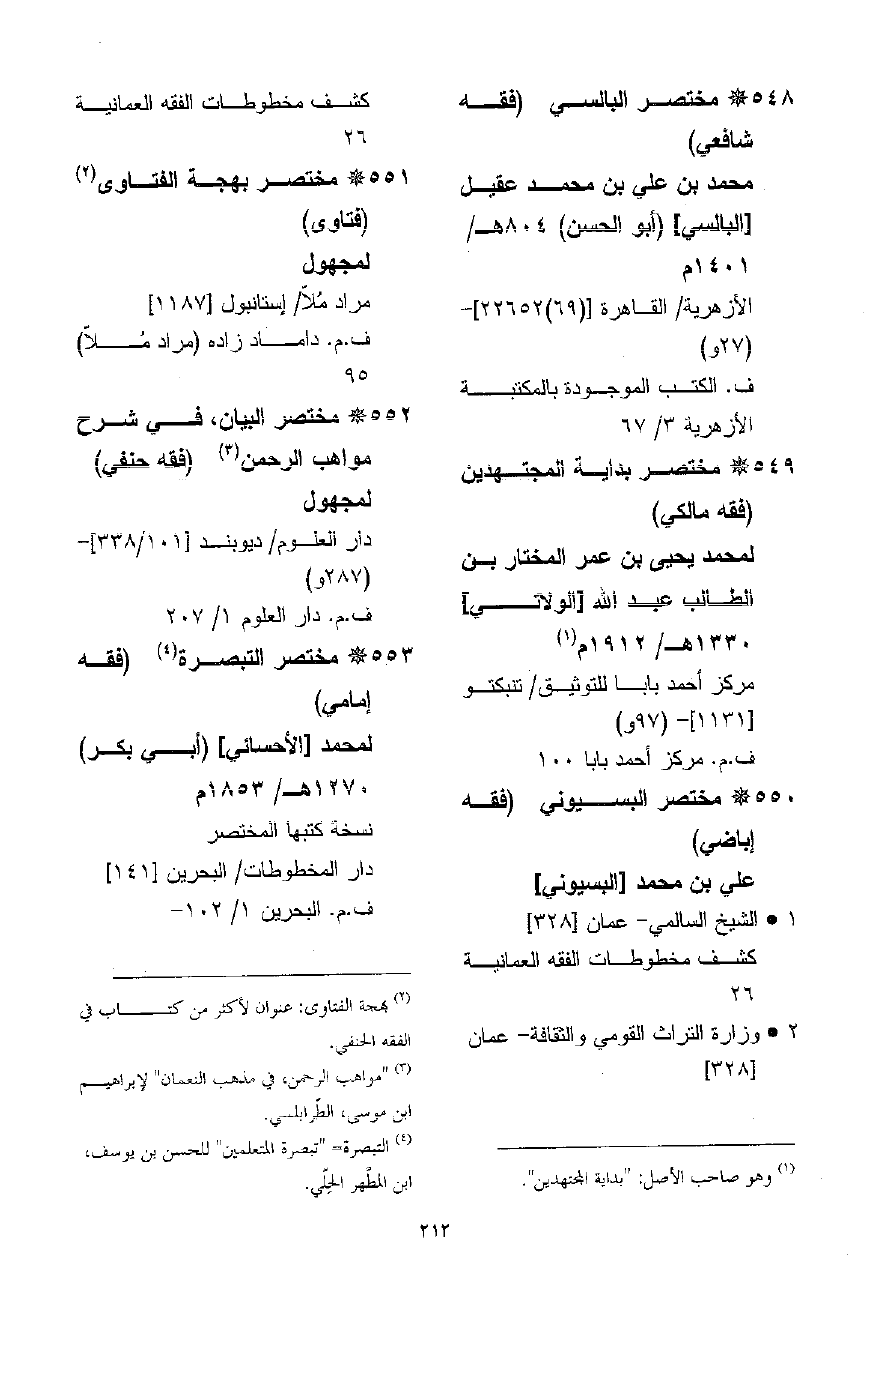 ٥٤٨* مختصر البالسي (فقه
شافعي)
محمد بن علي بن محمد عقيل
[البالسي] (أبو الحسن) ٨٠٤هـ/
١٤٠١م
الأزهرية/ القاهرة [(٦٩)٢٢٦٥٢]-
(٢٧و)
ف. الكتب الموجودة بالمكتبة
الأزهرية ٣/ ٦٧
٥٤٩* مختصر بداية المجتهدين
(فقه مالكي)
لمحمد يحيى بن عمر المختار بن
الطالب عبد الله [الولاتي]
١٣٣٠هـ/ ١٩١٢م(١)
مركز أحمد بابا للتوثيق/ تنبكتو
[١١٣١]- (٩٧و)
ف.م. مركز أحمد بابا ١٠٠
٥٥٠* مختصر البسيوني (فقه
إباضي)
علي بن محمد [البسيوني]
١ • الشيخ السالمي- عمان [٣٢٨]
كشف مخطوطات الفقه العمانية
٢٦
٢ • وزارة التراث القومي والثقافة- عمان
[٣٢٨]
(١) وهو صاحب الأصل: "بداية المجتهدين".
كشف مخطوطات الفقه العمانية
٢٦
٥٥١* مختصر بهجة الفتاوى(٢)
(فتاوى)
لمجهول
مراد مُلاّ/ إستانبول [١١٨٧]
ف.م. داماد زاده (مراد مُلاّ)
٩٥
٥٥٢* مختصر البيان، في شرح
مواهب الرحمن(٣) (فقه حنفي)
لمجهول
دار العلوم/ ديوبند [٣٣٨/١٠١]-
(٢٨٧و)
ف.م. دار العلوم ١/ ٢٠٧
٥٥٣* مختصر التبصرة(٤) (فقه
إمامي)
لمحمد [الأحسائي] (أبي بكر)
١٢٧٠هـ/ ١٨٥٣م
نسخة كتبها المختصر
دار المخطوطات/ البحرين [١٤١]
ف.م. البحرين ١/ ١٠٢-
(٢) بهجة الفتاوى: عنوان لأكثر من كتاب في
الفقه الحنفي.
(٣) "مواهب الرحمن، في مذهب النعمان" لإبراهيم
ابن موسى، الطّرابلسي.
(٤) التبصرة= "تبصرة المتعلمين" للحسن بن يوسف،
ابن المطّهر الحِلّي.
٢١٢